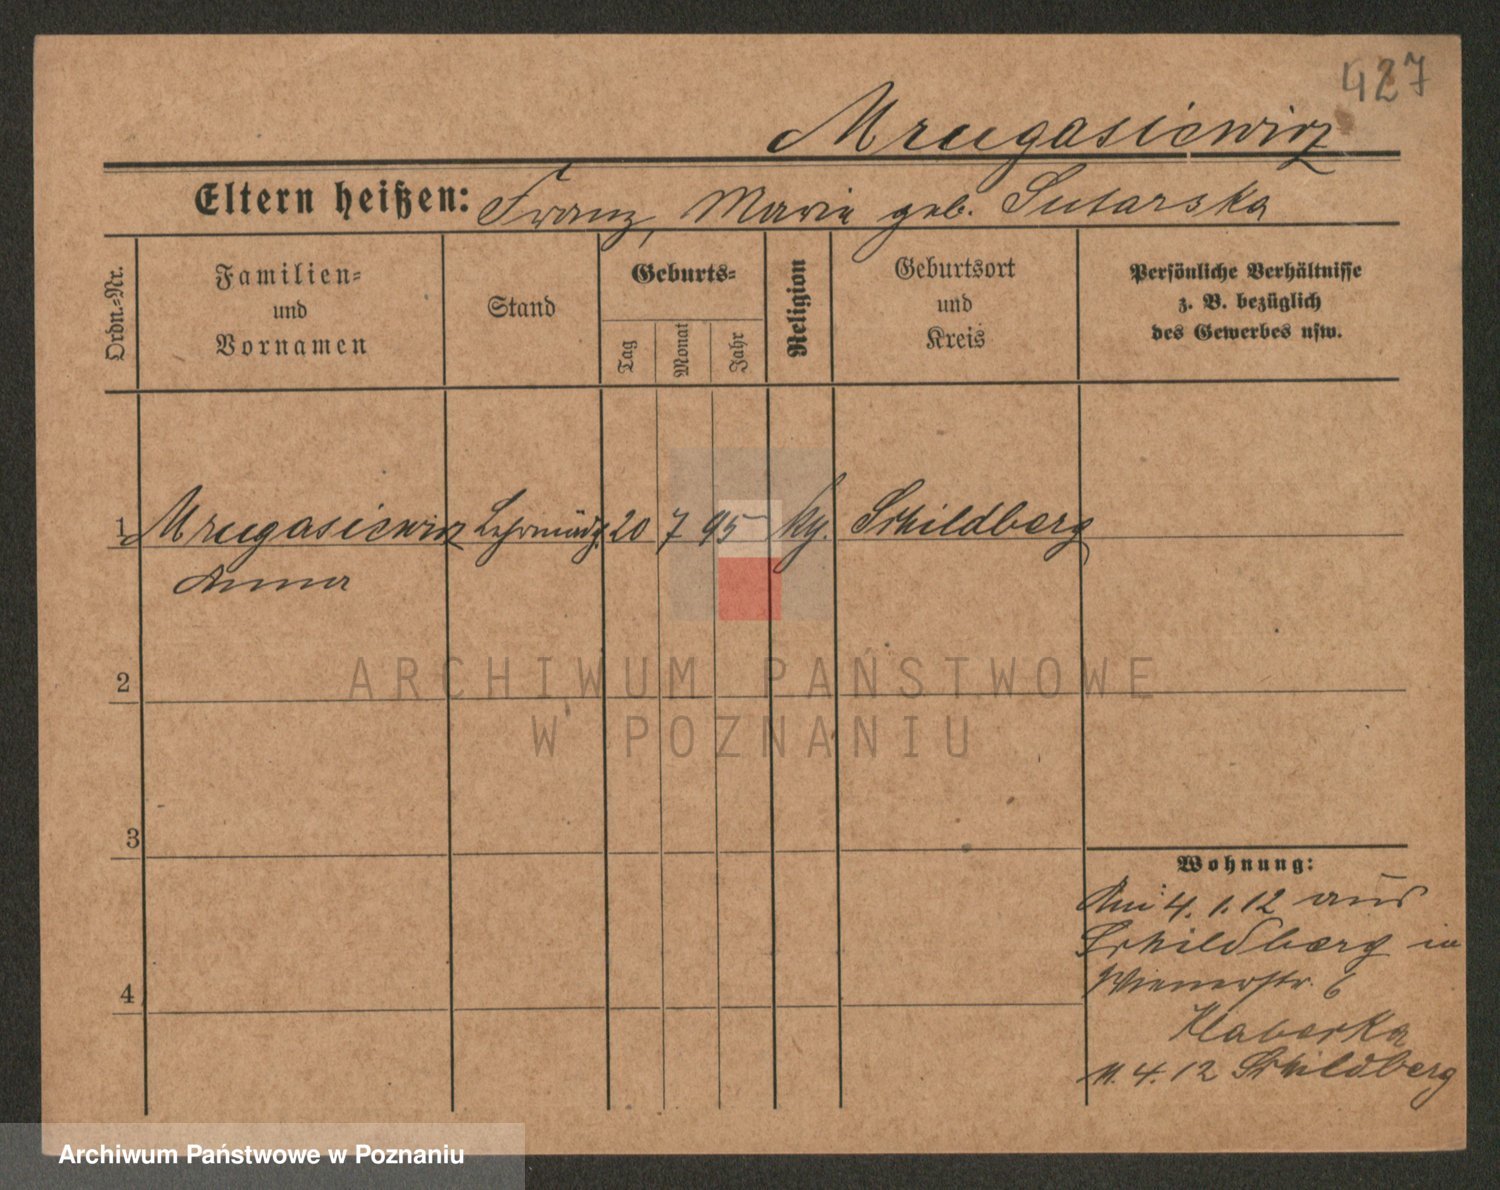 427
Mrugasiewicz
Eltern heißen: Franz, Marie geb. Sutarska
Ordn.-Nr.
Familien-
und
Vornamen
Stand
Geburts-
Tag
Monat
Jahr
Religion
Geburtsort
und
Kreis
Persönliche Verhältnisse
z. B. bezüglich
des Gewerbes usw.
1 Mrugasiewicz 20 7 95 Schildberg
Anna
2
3
4
Wohnung:
Am 4. 1. 12 aus
Schildberg in
Wienerstr. 6
4. 12 Schildberg
ARCHIWUM PAŃSTWOWE
W POZNANIU
Archiwum Państwowe w Poznaniu